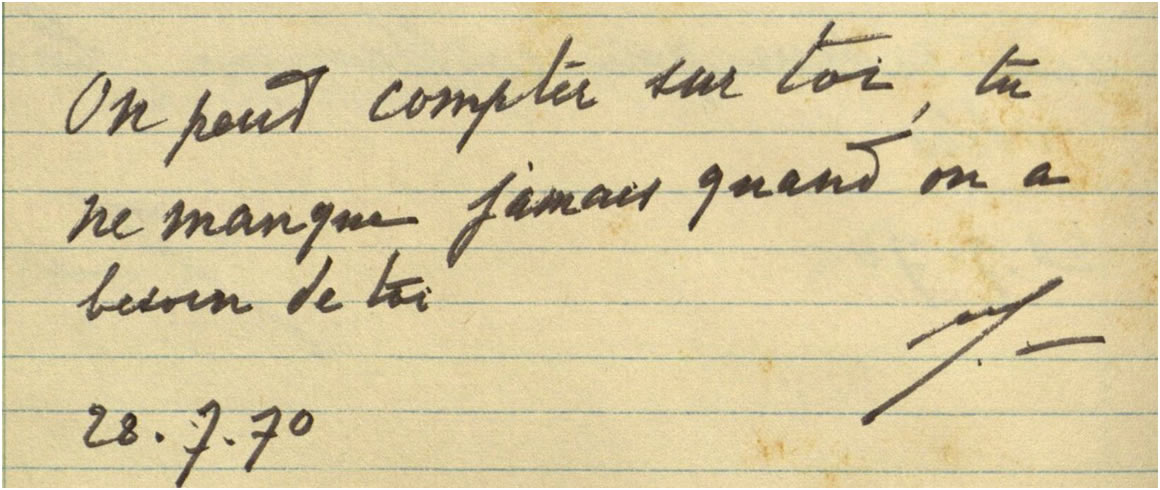 On peut compter sur toi, tu
ne manque jamais quand on a
besoin de toi
28.7.70